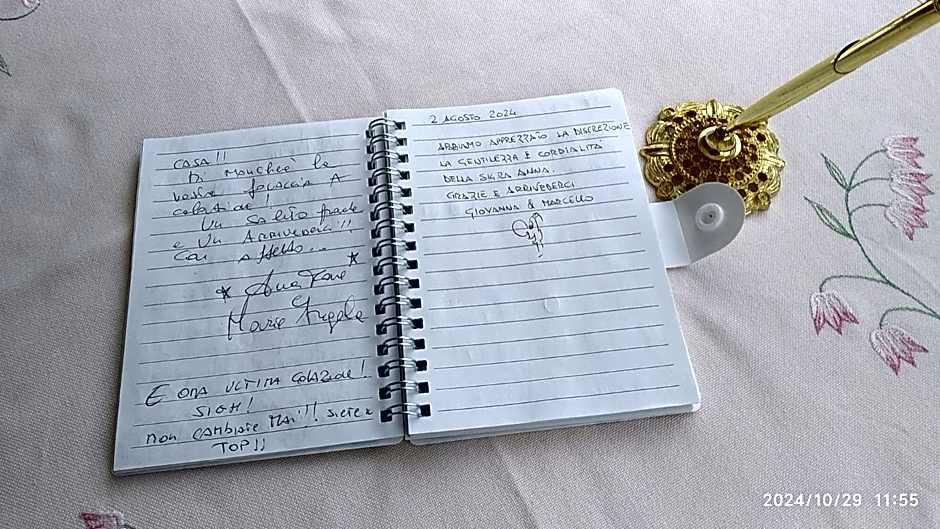 CASA!!
Di Mancherà la
vostra focaccia A
colazione!
Un Saluto grande
e Un ARRIVEDERCI!!
Con affetto...
* Anna *
Maria Angela
E ORA ULTIMA COLAZIONE!
SIGH!
non CAMBIATE MAI!! siete
TOP!!
2 AGOSTO 2024
ABBIAMO APPREZZATO LA DISCREZIONE
LA GENTILEZZA E CORDIALITÀ
DELLA SIG.RA ANNA.
GRAZIE E ARRIVEDERCI
GIOVANNA & MARCELLO
2024/10/29 11:55